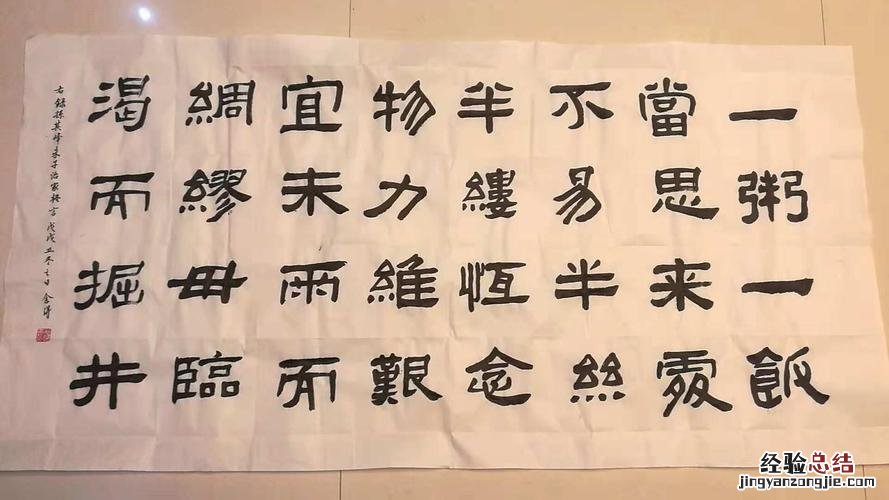 一粥一飯
當思来處
不易半絲
半縷恆念
物力維艱
宜未雨而
綢繆毋臨
渴而掘井
右錄孫其峰朱子治家格言 戊戌立冬之日
经验总结
jingyanzongjie.com